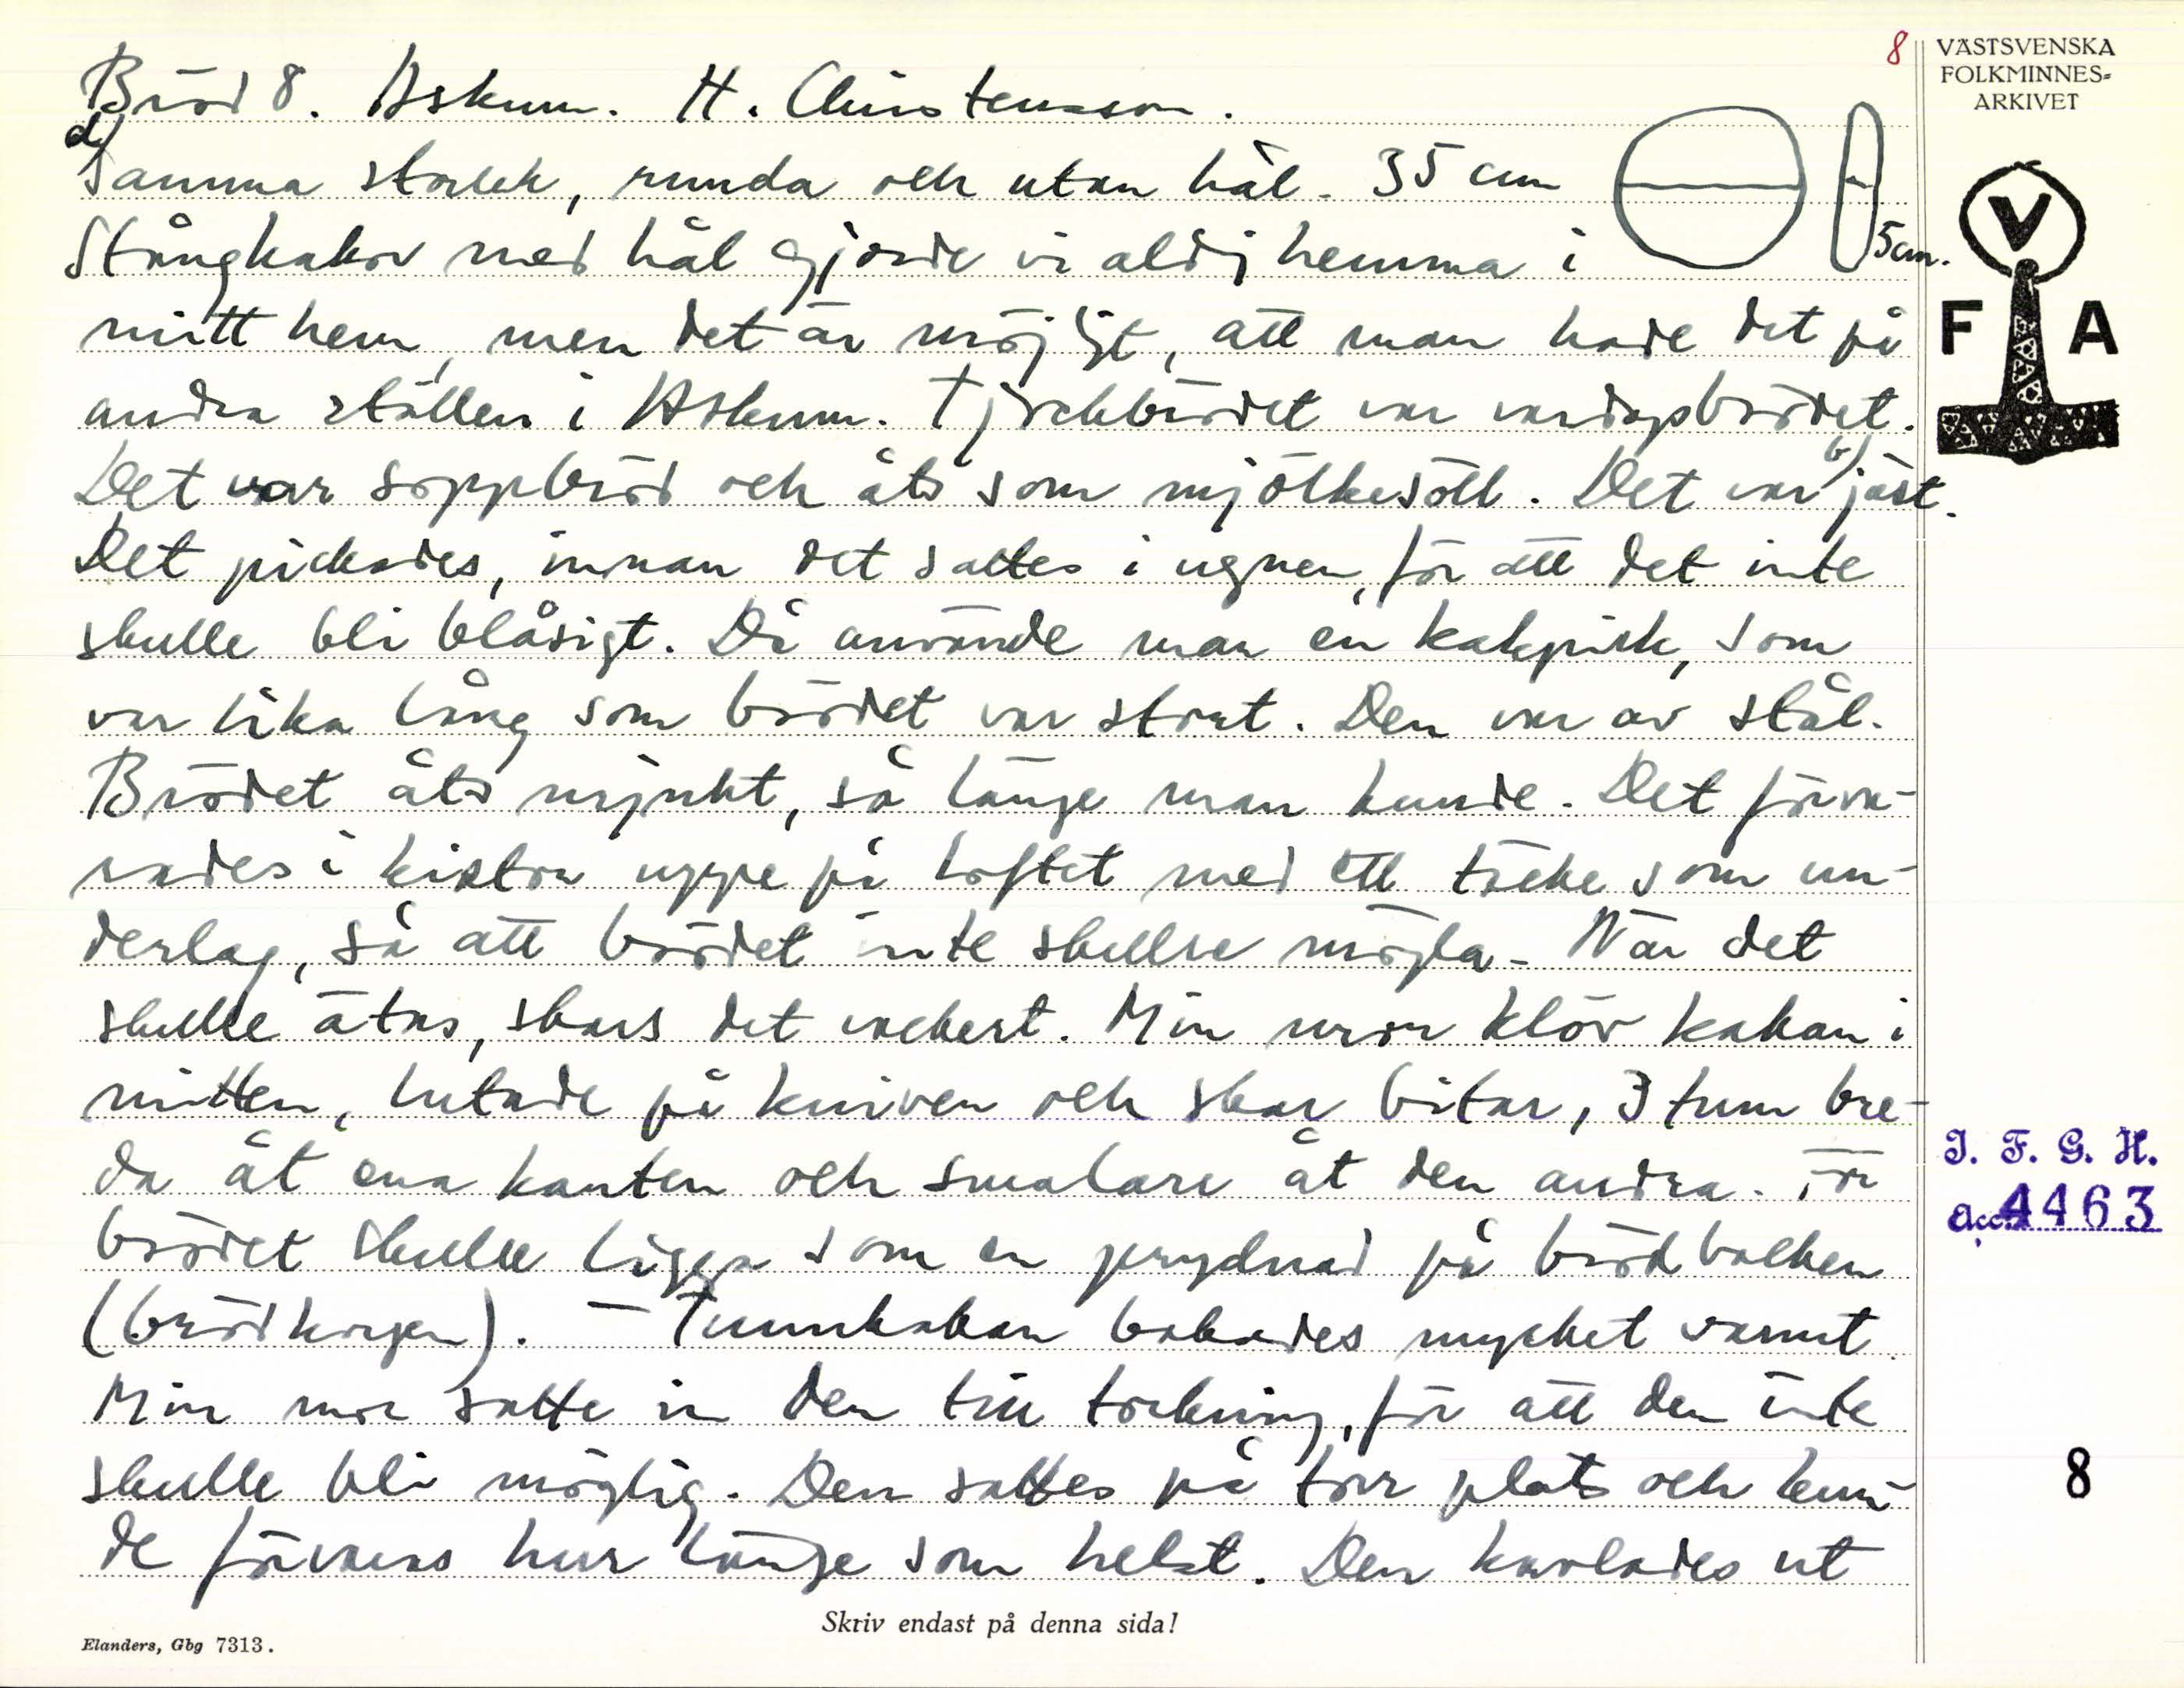 8
VÄSTSVENSKA
FOLKMINNES-
ARKIVET
V
F A
Bröd 8. Askum. H. Christensson.
d) Samma storlek, runda och utan hål. 35 cm
5 cm.
Stångkakor med hål gjorde vi aldrig hemma i
mitt hem, men det är möjligt, att man hade det på
andra ställen i Askum. Tjockbrödet var vardagsbrödet.
Det var soppbröd och åts som mjölkesöll. Det var b) jäst.
Det pickades, innan det sattes i ugnen, för att det inte
skulle bli blåsigt. Då använde man en kakpisk, som
var lika lång som brödet var stort. Den var av stål.
Brödet åts mjukt, så länge man kunde. Det förva-
rades i kistor uppe på loftet med ett täcke som un-
derlag, så att brödet inte skulle mögla. När det
skulle ätas, skars det vackert. Min mor klöv kakan i
mitten, lutade på kniven och skar bitar, 3 tum bre-
da åt ena kanten och smalare åt den andra. För
brödet skulle ligga som en prydnad på brödbacken
(brödkorgen). – Tunnkakan bakades mycket varmt.
Min mor satte in den till torkning, för att den inte
skulle bli möglig. Den sattes på torr plats och kun-
de förvaras hur länge som helst. Den kavlades ut
J. F. G. H.
Acc. 4463
8
Skriv endast på denna sida!
Elanders, Gbg 7313.